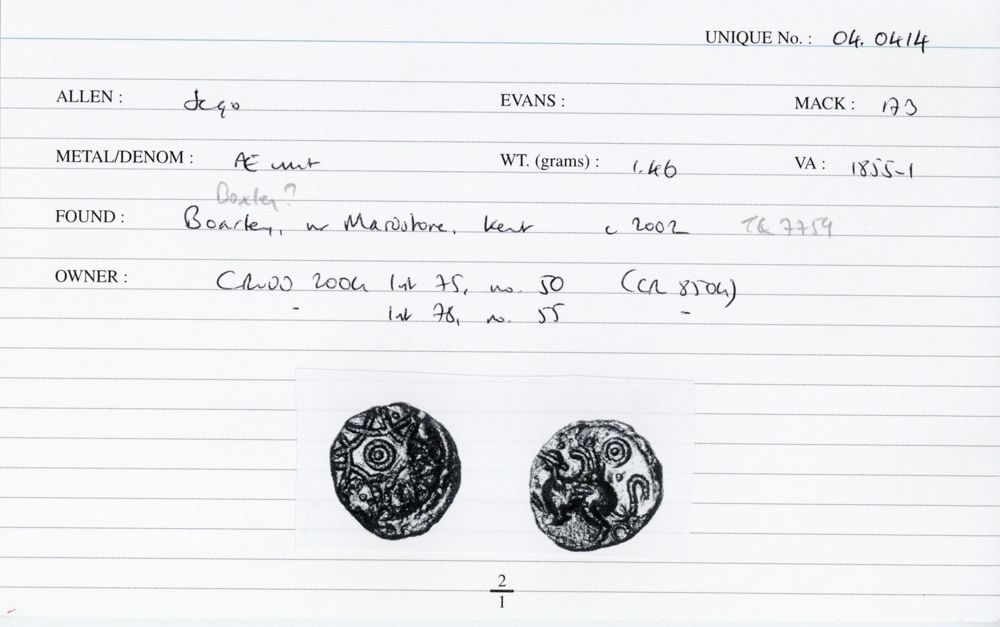 UNIQUE No. : 04.0414
ALLEN : EVANS : MACK : 173
METAL/DENOM : Æ unit WT. (grams) : 1.46 VA : 1855-1
Boxley?
FOUND : Boarley, nr Maidstone, Kent c 2002 TQ 7759
OWNER : 2004 list 75, no. 50 (CR 850h)
- list 78, no. 55 -
2
1